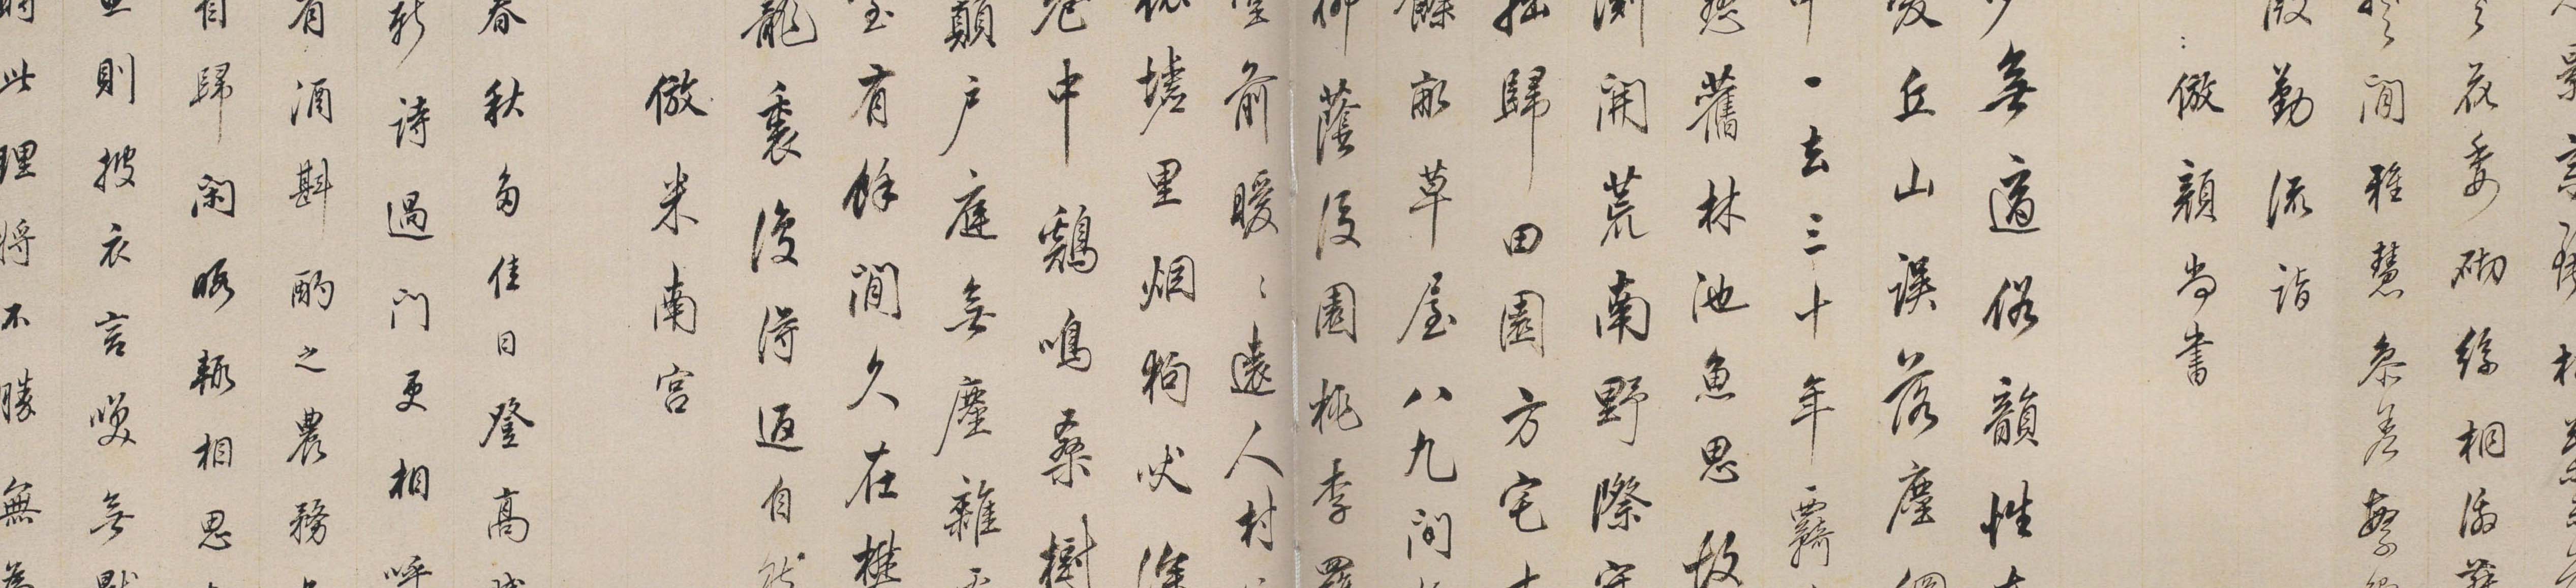 景言
衣委砌綠相
間雅慧參差
殷勤流詣
倣顏尚書
少無適俗韻性
愛丘山誤落塵網
中一去三十年羈
戀舊林池魚思故
淵開荒南野際守
拙歸田園方宅十
餘畝草屋八九間
柳蔭後園桃李羅
堂前曖〻遠人村
依墟里烟狗吠深
巷中鷄鳴桑樹
顛戶庭無塵雜
室有餘閒久在樊
籠裏復得返自然
倣米南宮
春秋多佳日登高
新詩過門更相呼
有酒斟酌之農務
自歸閑暇輒相思
則披衣言笑無厭
時此理將不勝無為